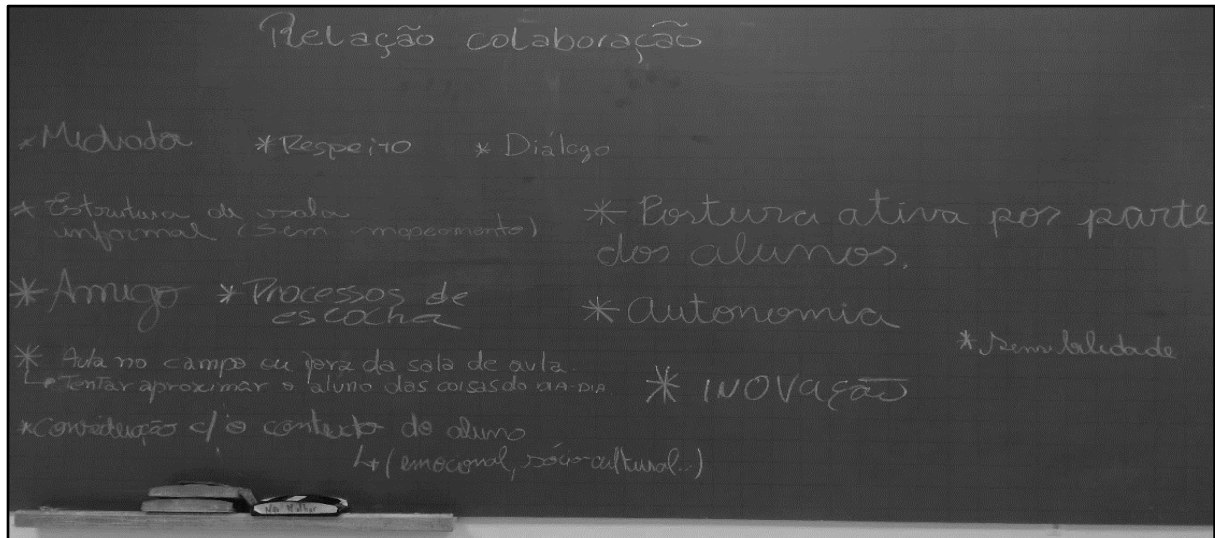 Relação colaboração
* Mediador * Respeito * Diálogo
* Estrutura da sala
informal (sem mapeamento)
* Postura ativa por parte
dos alunos.
* Amigo * Processos de
escolha
* Autonomia
* Sensibilidade
* Aula no campo ou fora da sala de aula.
↳ Tentar aproximar o aluno das coisas do DIA-DIA.
* INOVAÇÃO
* Consideração c/ o contexto do aluno
↳ (emocional, sócio-cultural...)
Não Molhar